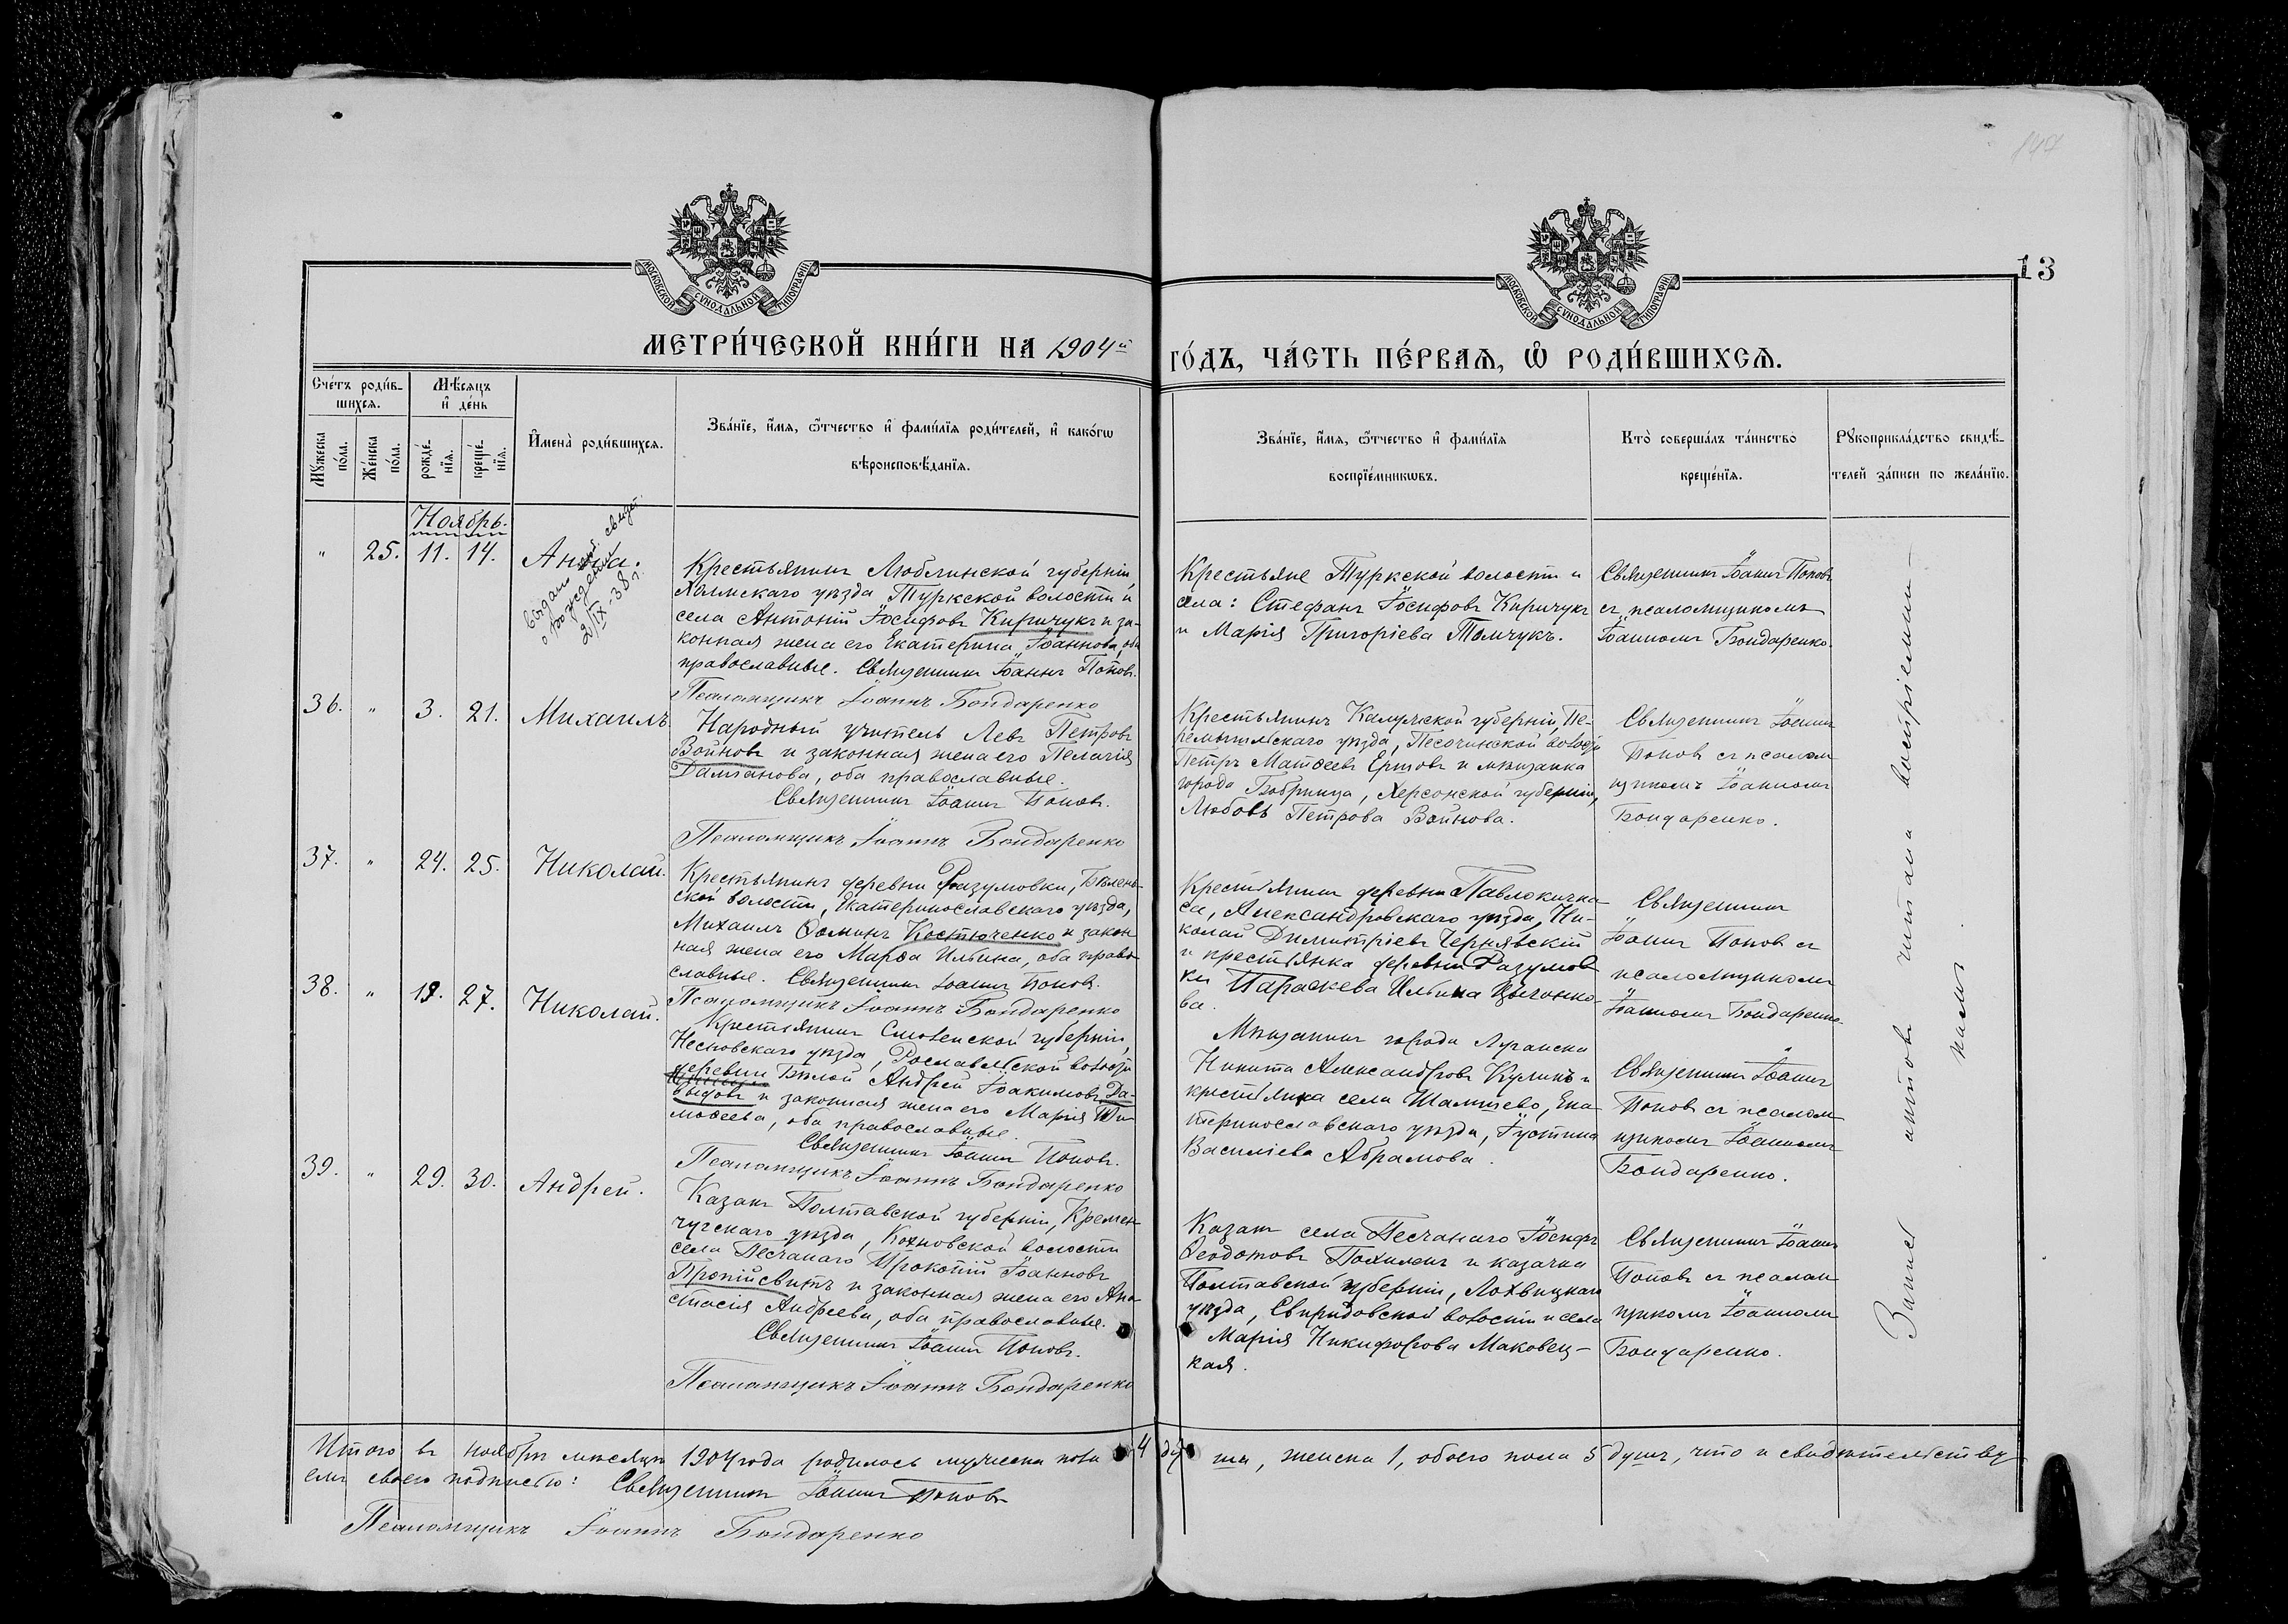 147
13
МОСКОВСКОЙ СѴНОДАЛЬНОЙ ТИПОГРАФІИ
МОСКОВСКОЙ СѴНОДАЛЬНОЙ ТИПОГРАФІИ
МЕТРИ́ЧЕСКОЙ КНИ́ГИ НА 1904й
ГО́ДЪ, ЧА́СТЬ ПЕ́РВАѦ, Ѽ РОДИ́ВШИХСѦ.
Сче́тъ роди́в-
шихсѧ.
Мѣ́сѧцъ
и҆ де́нь
Мꙋ́жеска
по́ла.
Же́нска
по́ла.
рожде́-
нїѧ.
креще́-
нїѧ.
И҆мена̀ роди́вшихсѧ.
Зва́нїе, и҆́мѧ, ѻ҆́тчество и҆ фами́лїѧ роди́телей, и҆ како́гѡ
вѣроисповѣ́данїѧ.
Зва́нїе, и҆́мѧ, ѻ҆́тчество и҆ фами́лїѧ
воспрїе́мникѡвъ.
Кто̀ соверша́лъ та́инство
креще́нїѧ.
Рꙋкоприкла́дство свидѣ́-
телей за́писи по жела́нїю.
Ноябрь.
" 25. 11. 14. Анна.
о рождении
2/IX-38 г.
Крестьянинъ Люблинской губерніи,
Холмскаго уѣзда Туркской волости и
села Антоній Іосифовъ Киричукъ и за-
конная жена его Екатерина Іоаннова, оба
православные. Священникъ Іоаннъ Поповъ.
Псаломщикъ Іоаннъ Бондаренко
Крестьяне Туркской волости и
села: Стефанъ Іосифовъ Киричукъ
и Марія Григоріева Томчукъ.
Священникъ Іоаннъ Поповъ
съ псаломщикомъ
Іоанномъ Бондаренко.
36. " 3. 21. Михаилъ.
Народный учитель Левъ Петровъ
Войновъ и законная жена его Пелагія
Даміанова, оба православные.
Священникъ Іоаннъ Поповъ.
Псаломщикъ Іоаннъ Бондаренко
Крестьянинъ Калужской губерніи, Пе-
ремышльскаго уѣзда, Песочинской волости
Петръ Матѳеевъ Ершовъ и мѣщанка
города Бобринца, Херсонской губерніи,
Любовь Петрова Войнова.
Священникъ Іоаннъ
Поповъ съ псалом-
щикомъ Іоанномъ
Бондаренко.
37. " 24. 25. Николай.
Крестьянинъ деревни Разумовки, Бѣлень-
ской волости, Екатеринославскаго уѣзда,
Михаилъ Ѳоминъ Костюченко и закон-
ная жена его Марѳа Ильина, оба право-
славные. Священникъ Іоаннъ Поповъ.
Псаломщикъ Іоаннъ Бондаренко
Крестьянинъ деревни Павлокичка-
са, Александровскаго уѣзда, Ни-
колай Димитріевъ Чернявскій
и крестьянка деревни Разумов-
ки Параскева Ильина
ва.
Священникъ
Іоаннъ Поповъ съ
псаломщикомъ
Іоанномъ Бондаренко.
38. " 19. 27. Николай.
Крестьянинъ Смоленской губерніи,
уѣзда, Рославльской волости
деревни Бѣлой Андрей Іоакимовъ Да-
выдовъ и законная жена его Марія Ти-
моѳеева, оба православные.
Священникъ Іоаннъ Поповъ.
Псаломщикъ Іоаннъ Бондаренко
Мѣщанинъ города Луганска
Никита Александровъ Куликъ и
крестьянка села Шолохово, Ека-
теринославскаго уѣзда, Іустина
Василіева Абрамова.
Священникъ Іоаннъ
Поповъ съ псалом-
щикомъ Іоанномъ
Бондаренко.
39. " 29. 30. Андрей.
Казакъ Полтавской губерніи, Кремен-
чугскаго уѣзда, Кохновской волости
села Песчанаго Прокопій Іоанновъ
Пропійсвитъ и законная жена его Ана-
стасія Андреева, оба православные.
Священникъ Іоаннъ Поповъ.
Псаломщикъ Іоаннъ Бондаренко
Казакъ села Песчанаго Іосифъ
Ѳеодотовъ Похиленъ и казачка
Полтавской губерніи, Лохвицкаго
уѣзда, Свиридовской волости и села
Марія Никифорова Маковец-
кая.
Священникъ Іоаннъ
Поповъ съ псалом-
щикомъ Іоанномъ
Бондаренко.
Запись актовъ читана воспріемни-
камъ.
Итого въ ноябрѣ мѣсяцѣ 1904 года родилось мужеска пола 4 ду ша, женска 1, обоего пола 5 душъ, что и свидѣтельству-
емъ своею подписью: Священникъ Іоаннъ Поповъ
Псаломщикъ Іоаннъ Бондаренко